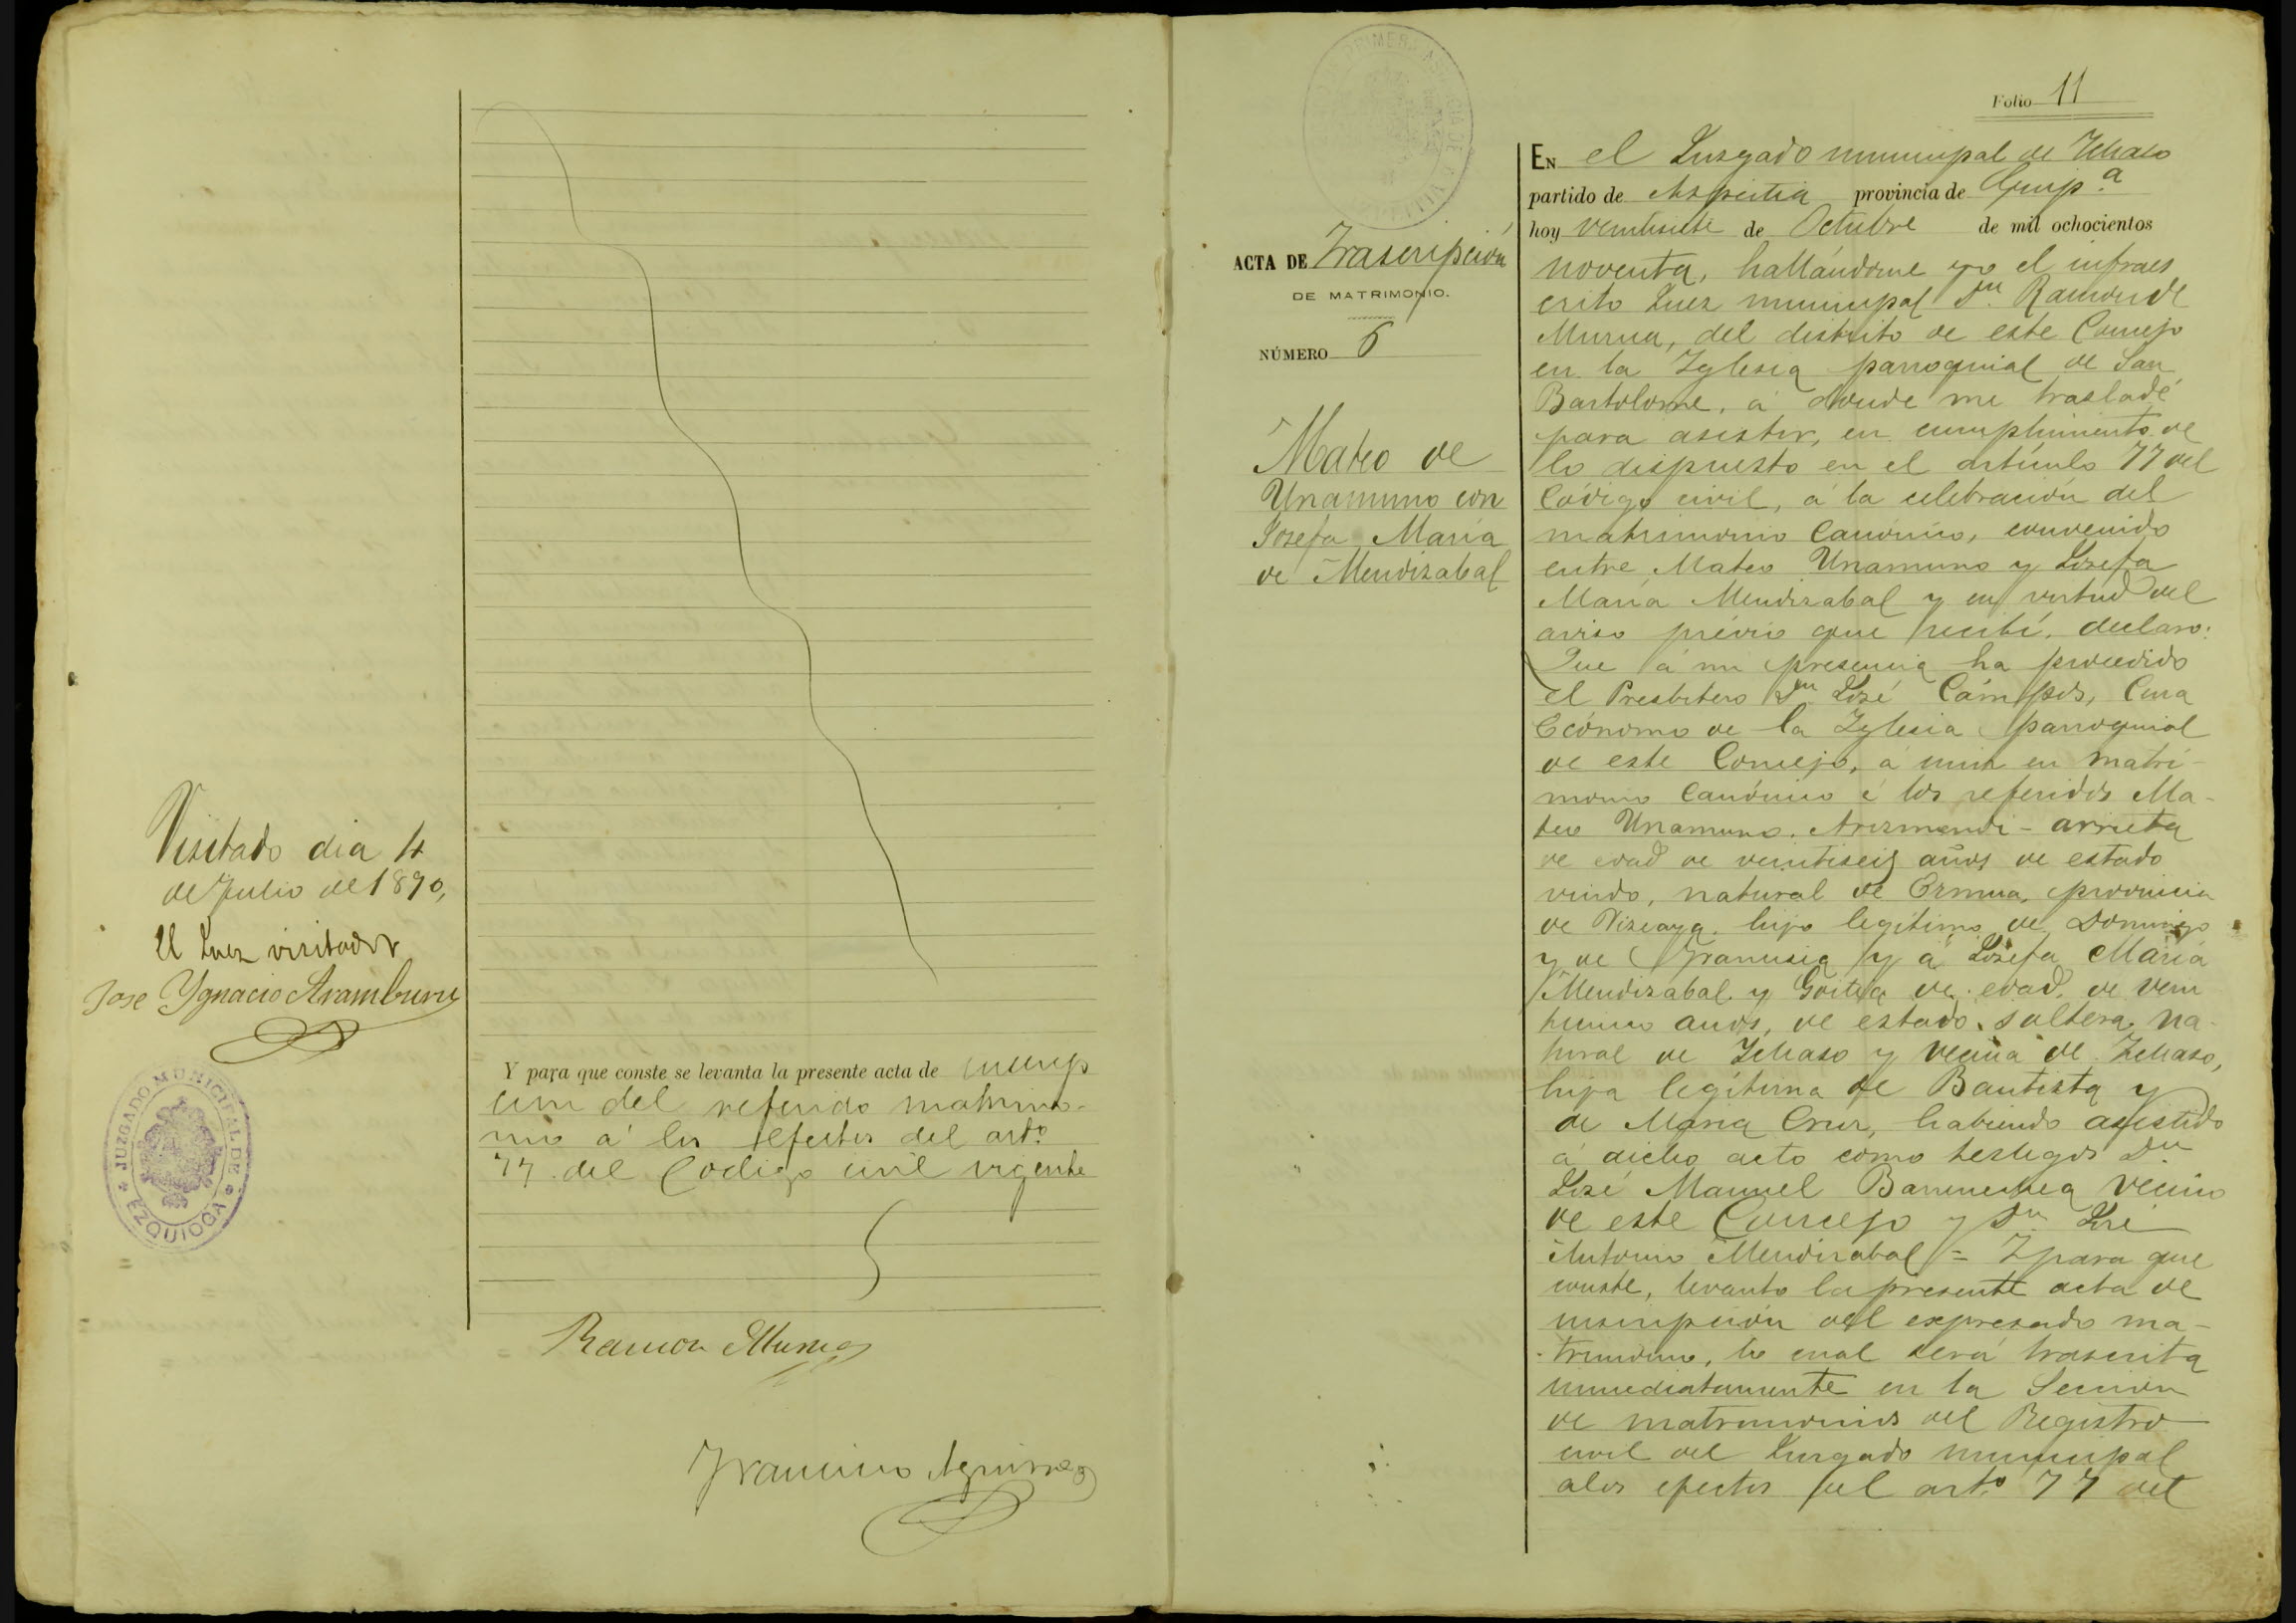 Visitado dia 4
de Julio de 1890,
El Juez visitador
Jose Ygnacio Aramburu
JUZGADO MUNICIPAL DE
EZQUIOGA
Y para que conste se levanta la presente acta de inscrip
cion del referido matrimo-
nio á los efectos del artº
77 del Codigo civil vigente
Ramon Murua
Francisco Aguirre
Folio 11
ACTA DE Trascripción
DE MATRIMONIO.
NÚMERO 6
Mateo de
Unamuno con
Josefa María
de Mendizabal
EN el Juzgado municipal de Ichaso
partido de Azpeitia provincia de Guipª
hoy veintisiete de Octubre de mil ochocientos
noventa, hallándome yo el infraes
crito Juez municipal Dn Ramon de
Murua, del distrito de este Concejo
en la Yglesia parroquial de San
Bartolome, á donde me trasladé
para asistir, en cumplimiento de
lo dispuesto en el artículo 77 del
Código civil, á la celebración del
matrimonio Canónico, convenido
entre Mateo Unamuno y Josefa
María Mendizabal y en virtud del
aviso prévio que recibí, declaro:
Que á mi presencia ha procedido
el Presbitero Dn José Cámpos, Cura
Ecónomo de la Yglesia parroquial
de este Concejo, á unir en matri-
monio Canónico á los referidos Ma-
teo Unamuno. Arizmendi-arrieta
de edad de veintiseis años de estado
viudo, natural de Ermua, provincia
de Vizcaya. hijo legítimo de Domingo
y de Francisca y á Josefa María
Mendizabal y Goitia de edad. de vein
tiuno años, de estado. soltera, na-
tural de Ichaso y vecina de Ichaso,
hija legítima de Bautista y
de María Cruz, habiendo asistido
á dicho acto como testigos Dn
José Manuel vecino
de este Concejo y Dn José
Antonio Mendizabal = Y para que
conste, levanto la presente acta de
inscripción del expresado ma-
trimonio, la cual será trascrita
inmediatamente en la Sección
de matrimonios del Registro
civil del Juzgado municipal
alos efectos del artº 77 del